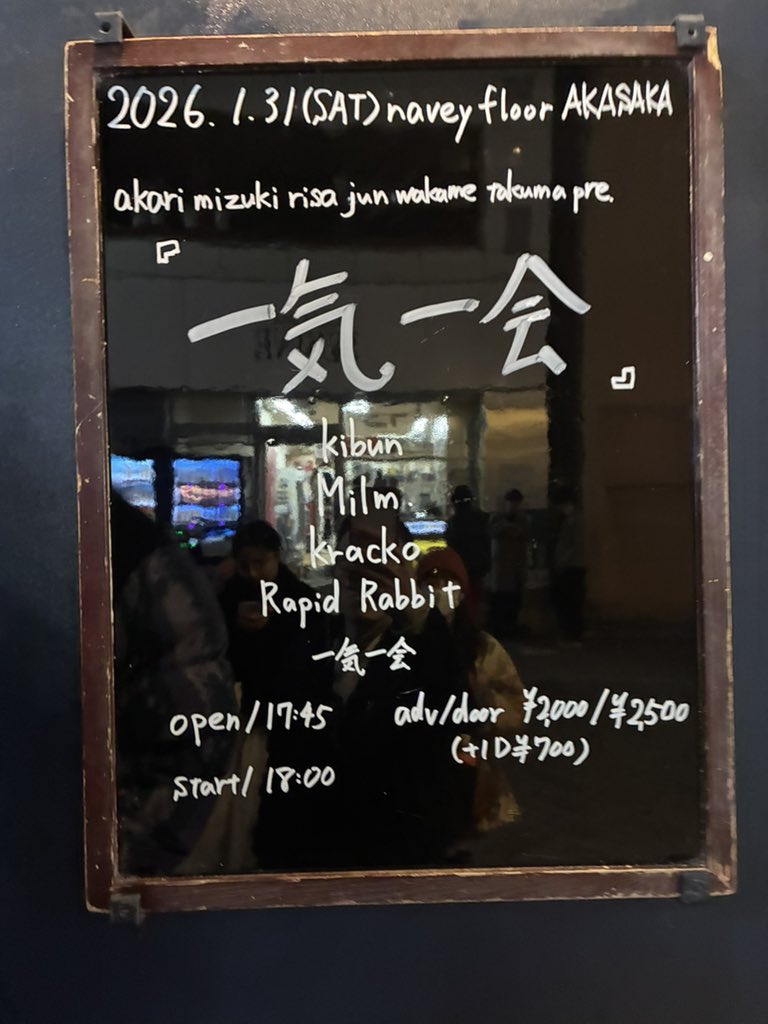 2026. 1. 31(SAT) navey floor AKASAKA
akari mizuki risa jun wakame takuma pre.
『
一気一会
』
kibun
Milm
kracko
Rapid Rabbit
一気一会
open/17:45
adv/door ¥2,000/¥2,500
(+1D¥700)
start/18:00